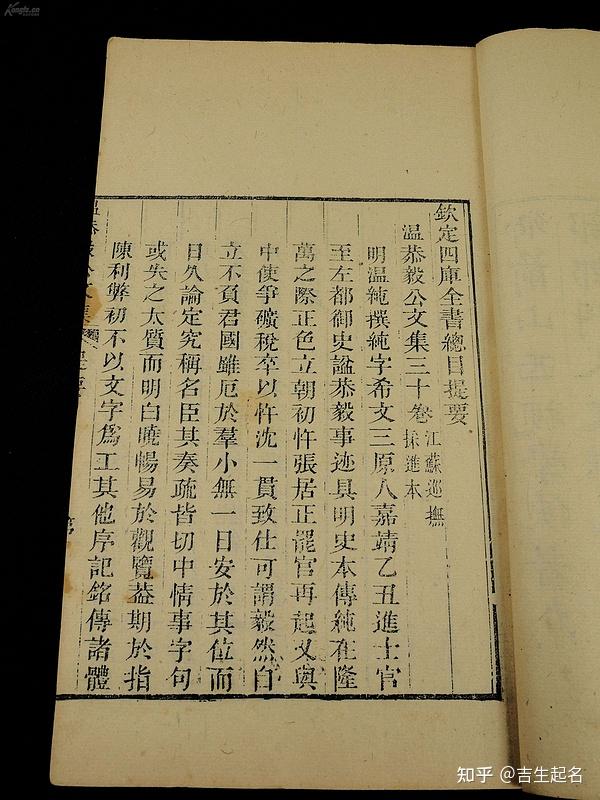 欽定四庫全書總目提要
温恭毅公文集三十卷 江蘇巡撫採進本
明温純撰純字希文三原人嘉靖乙丑進士官
至左都御史諡恭毅事迹具明史本傳純在隆
萬之際正色立朝初忤張居正罷官再起又與
中使爭礦稅卒以忤沈一貫致仕可謂毅然自
立不負君國雖厄於羣小無一日安於其位而
日久論定究稱名臣其奏疏皆切中情事字句
或失之太質而明白曉暢易於觀覽葢期於指
陳利弊初不以文字爲工其他序記銘傳諸體
知乎 @吉生起名